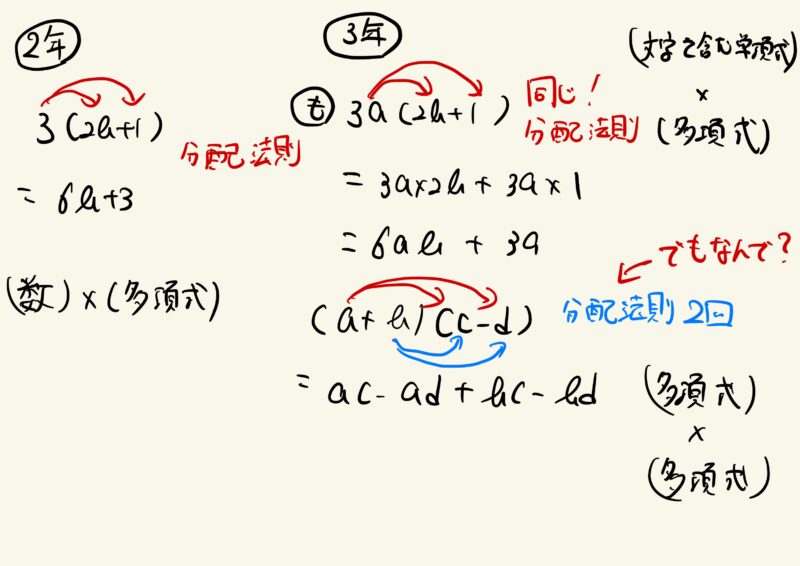 2年
3(2b+1)
分配法則
= 6b+3
(数)×(多項式)
3年
も 3a(2b+1)
同じ!
分配法則
= 3a×2b + 3a×1
= 6ab + 3a
(文字を含む単項式)
×
(多項式)
でもなんで?
(a+b)(c-d)
分配法則 2回
= ac - ad + bc - bd
(多項式)
×
(多項式)